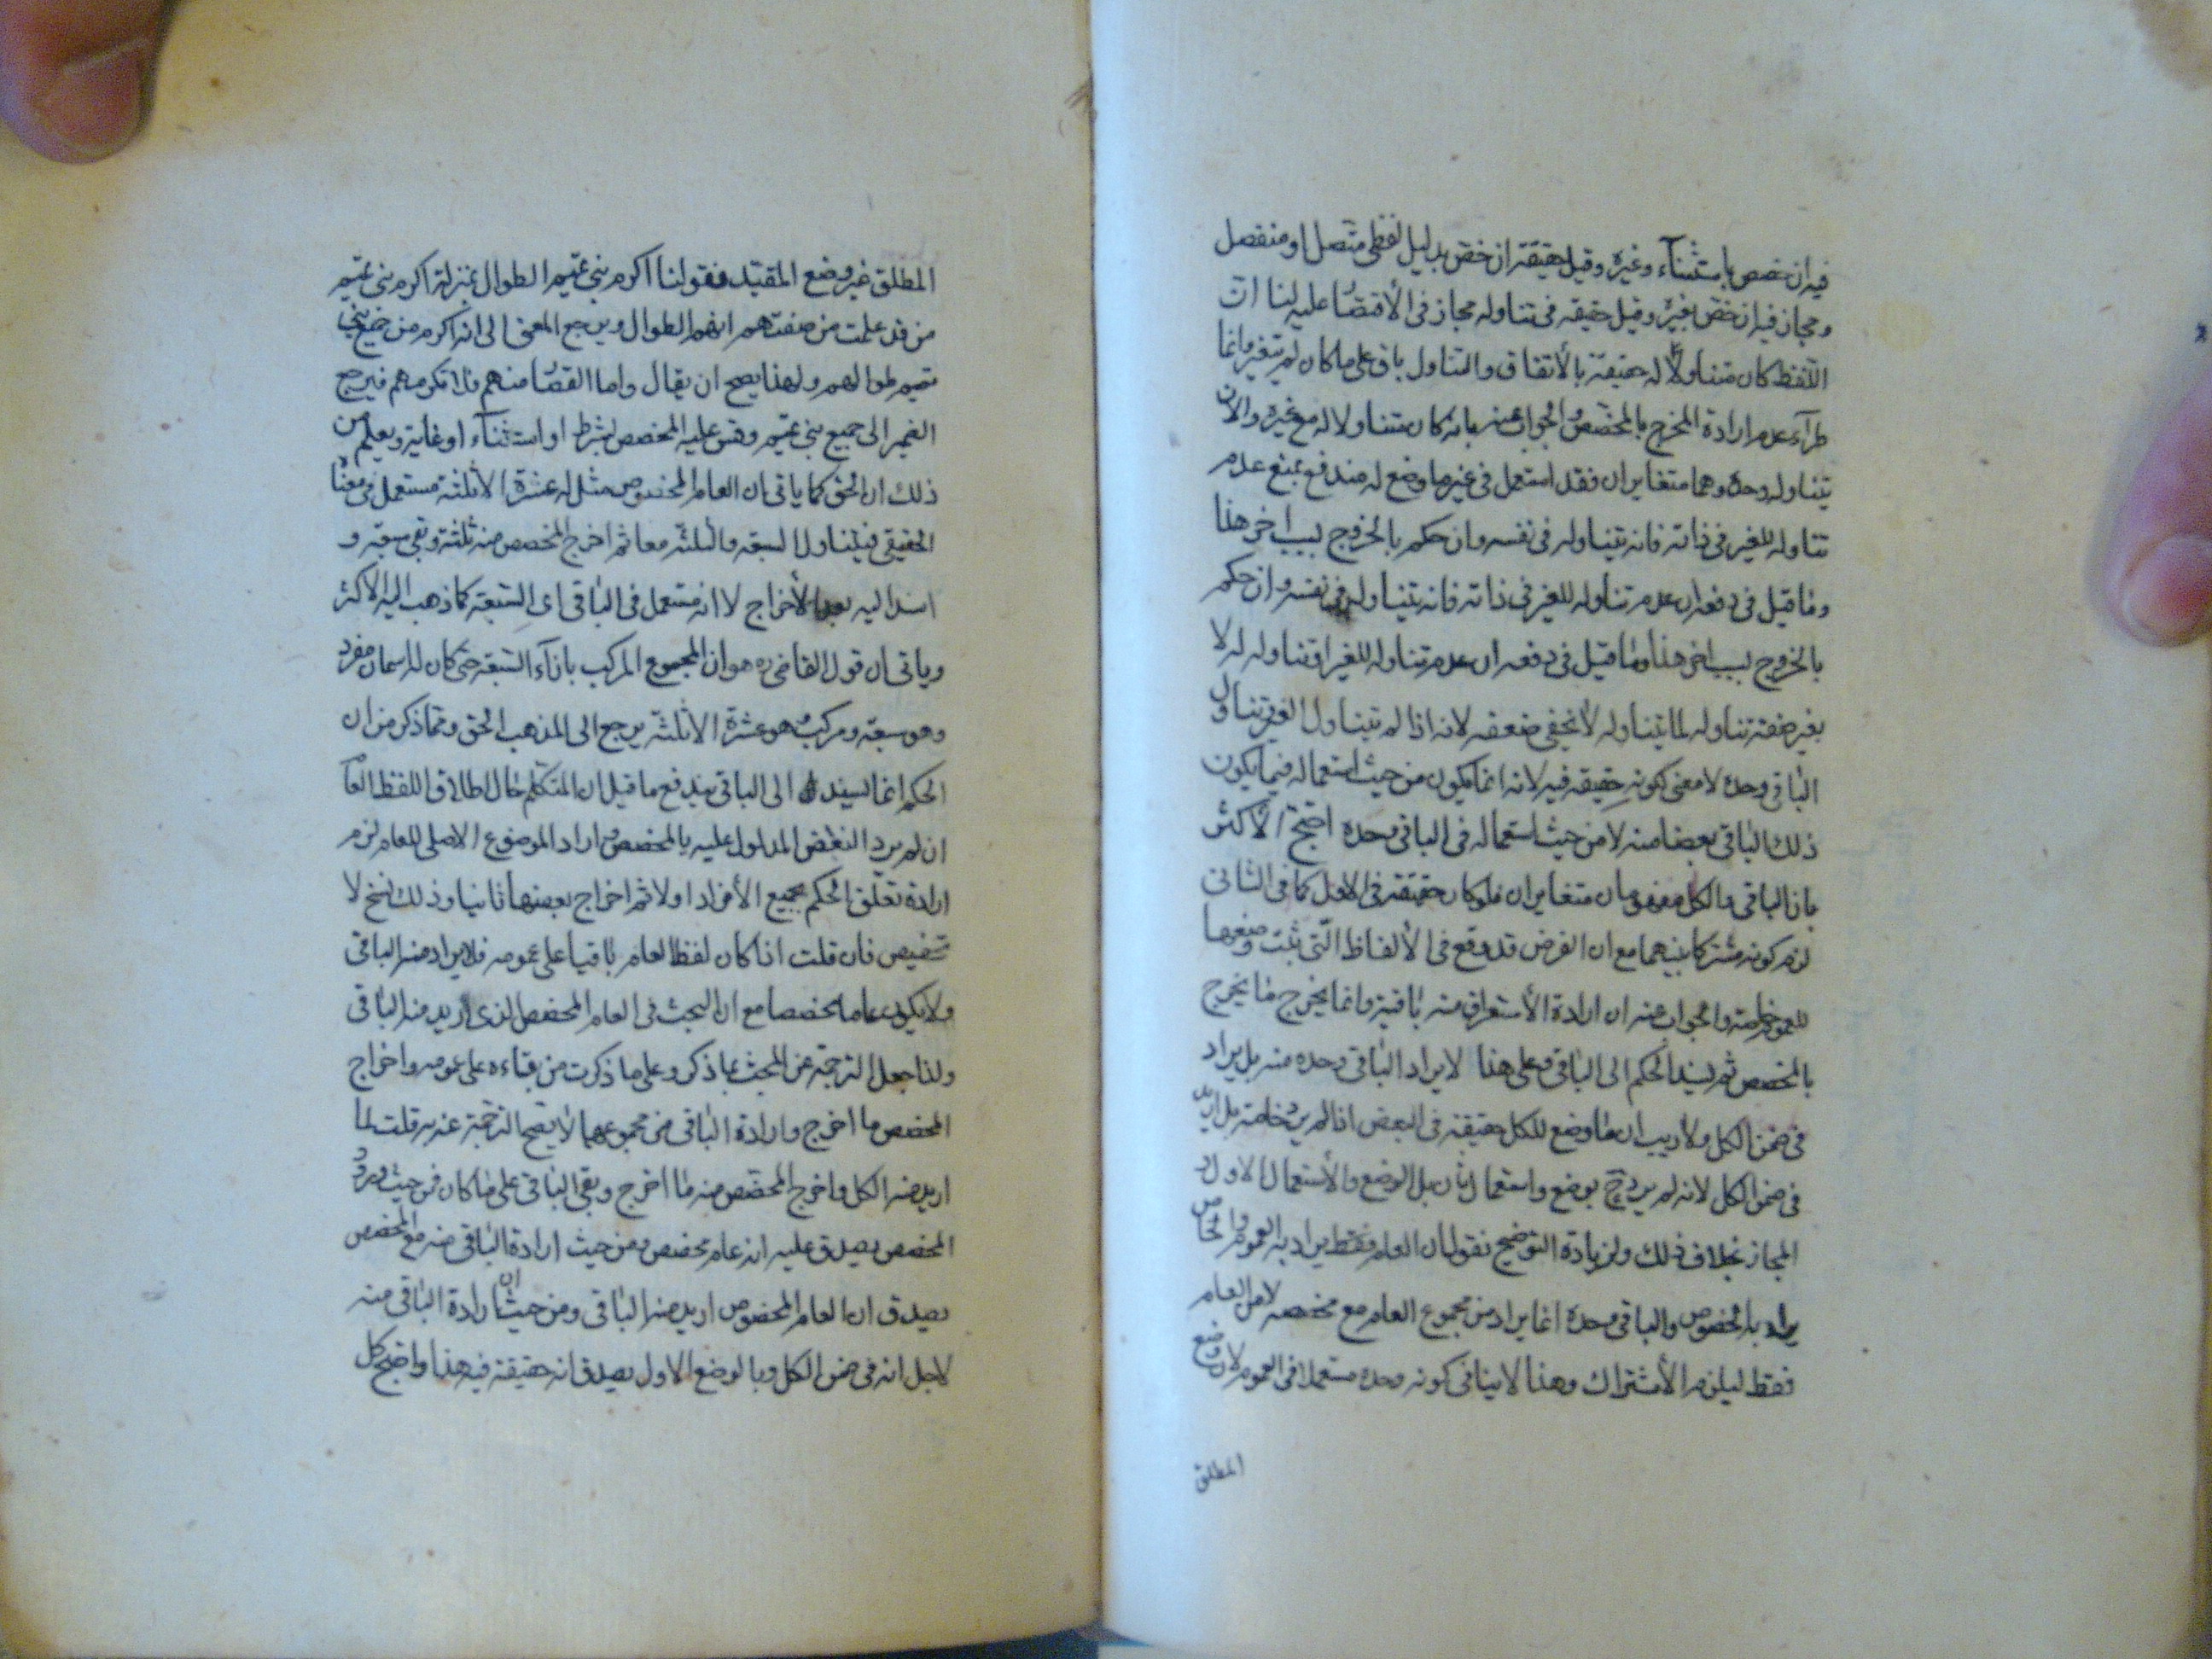 فيه ان خصص باستثناء وغيره وقيل حقيقة ان خص بدليل لفظى متصل او منفصل
ومجاز فيه ان خص بغيره وقيل حقيقه فى تناوله مجاز فى الأقتصا عليه لنا ان
اللفظ كان متناولا له حقيقة بالأتفاق والتناول باق على ما كان لم يتغير وانما
طرآء عدم ارادة المخرج بالمخصص والجواب عنه بانه كان متناولا له مع غيره والان
يتناوله وحده وهما متغايران فقد استعمل فى غير ما وضع له مندفع بمنع عدم
تناوله للغير فى ذاته فانه يتناوله فى نفسه وان حكم بالخروج لسبب اخر هذا
وما قيل فى دفعه ان عدم تناوله للغير فى ذاته فانه يتناوله فى نفسه وان حكم
بالخروج لسبب اخر هذا وما قيل فى دفعه ان عدم تناوله للغير او تناوله له لا
يغير صفة تناوله لما يتناوله لا يخفى ضعفه لانه اذا لم يتناول الغير وتناول
الباقى وحده لا معنى لكونه حقيقه فيه لانه انما يكون من حيث استعماله فيما يكون
ذلك الباقى بعضا منه لا من حيث استعماله فى الباقى وحده احتج الأكثر
بان الباقى والكل مفهومان متغايران فلو كان حقيقة فى الاول كما فى الثانى
لزم كونه مشتركا بينهما مع ان الفرض قد وقع فى الألفاظ التى ثبت وضعها
للعموم خاصة والجواب عنه ان ارادة الأستغراق منه باقية وانما يخرج ما يخرج
بالمخصص ثم يسند الحكم الى الباقى وعلى هذا لا يراد الباقى وحده منه بل يراد
فى ضمن الكل ولا ريب ان ما وضع للكل حقيقة فى البعض اذا لم يرد خاصة بل اريد
فى ضمن الكل لانه لم يرد ح بوضع واستعمال ثان بل الوضع والأستعمال الاول
المجاز بخلاف ذلك ولزيادة التوضيح نقول ان العام فقط يراد به العموم والخاص
يراد به الخصوص والباقى وحده انما يراد من مجموع العام مع مخصصه لا من العام
فقط ليلزم الأشتراك وهذا لا ينافى كونه وحده مستعملا فى العموم لان وضع
المطلق
المطلق غير وضع المقيد فقولنا اكرم بنى تميم الطوال بمنزلة اكرم بنى تميم
من قد علمت من صفتهم انهم الطوال ويرجع المعنى الى انه اكرم من جميع بنى
تميم طوالهم ولهذا يصح ان يقال واما القصا منهم فلا تكرمهم فيرجع
الضمير الى جميع بنى تميم وقس عليه المخصص بشرط او استثناء او غاية ويعلم من
ذلك ان الحق كما ياتى ان العام المخصوص مثل له عشرة الا ثلثة مستعمل فى معناه
الحقيقى فيتناول السبعه والثلثه معا ثم اخرج المخصص منه ثلثة وبقى سبعة و
اسند اليه بعد الأخراج لا انه مستعمل فى الباقى اى السبعة كما ذهب اليه الاكثر
وياتى ان قول القاضى ره هو ان المجموع المركب بازآء السبعه حتى كان له اسمان مفرد
وهو سبعه ومركب هو عشرة الا ثلثة يرجع الى المذهب الحق ومما ذكر من ان
الحكم انما يسند الى الباقى يندفع ما قيل ان المتكلم حال اطلاق اللفظ العا
ان لم يرد البعض المدلول عليه بالمخصص وراد الموضوع الاصلى للعام لزم
ارادة تعلق الحكم بجميع الأفراد اولا ثم اخراج بعضها ثانيا وذلك نسخ لا
تخصيص فان قلت اذا كان لفظ العام باقيا على عمومه فلا يراد منه الباقى
ولا يكون عاما مخصصا مع ان البحث فى العام المخصص الذى اريد منه الباقى
ولذا جعل الترجمة عن البحث بما ذكر وعلى ما ذكرت من بقاءه على عمومه واخراج
المخصص ما اخرج وارادة الباقى من مجموعهما لا يصح الترجمة عنه به قلت لما
اريد منه الكل واخرج المخصص منه ما اخرج وبقى الباقى على ما كان فمن حيث ورود
المخصص يصدق عليه انه عام مخصص ومن حيث ارادة الباقى منه مع المخصص
يصدق ان العام المخصوص اريد منه الباقى ومن حيث ان ارادة الباقى منه
لاجل انه فى ضمن الكل وبالوضع الاول يصدق انه حقيقة فيه هذا واضح كل